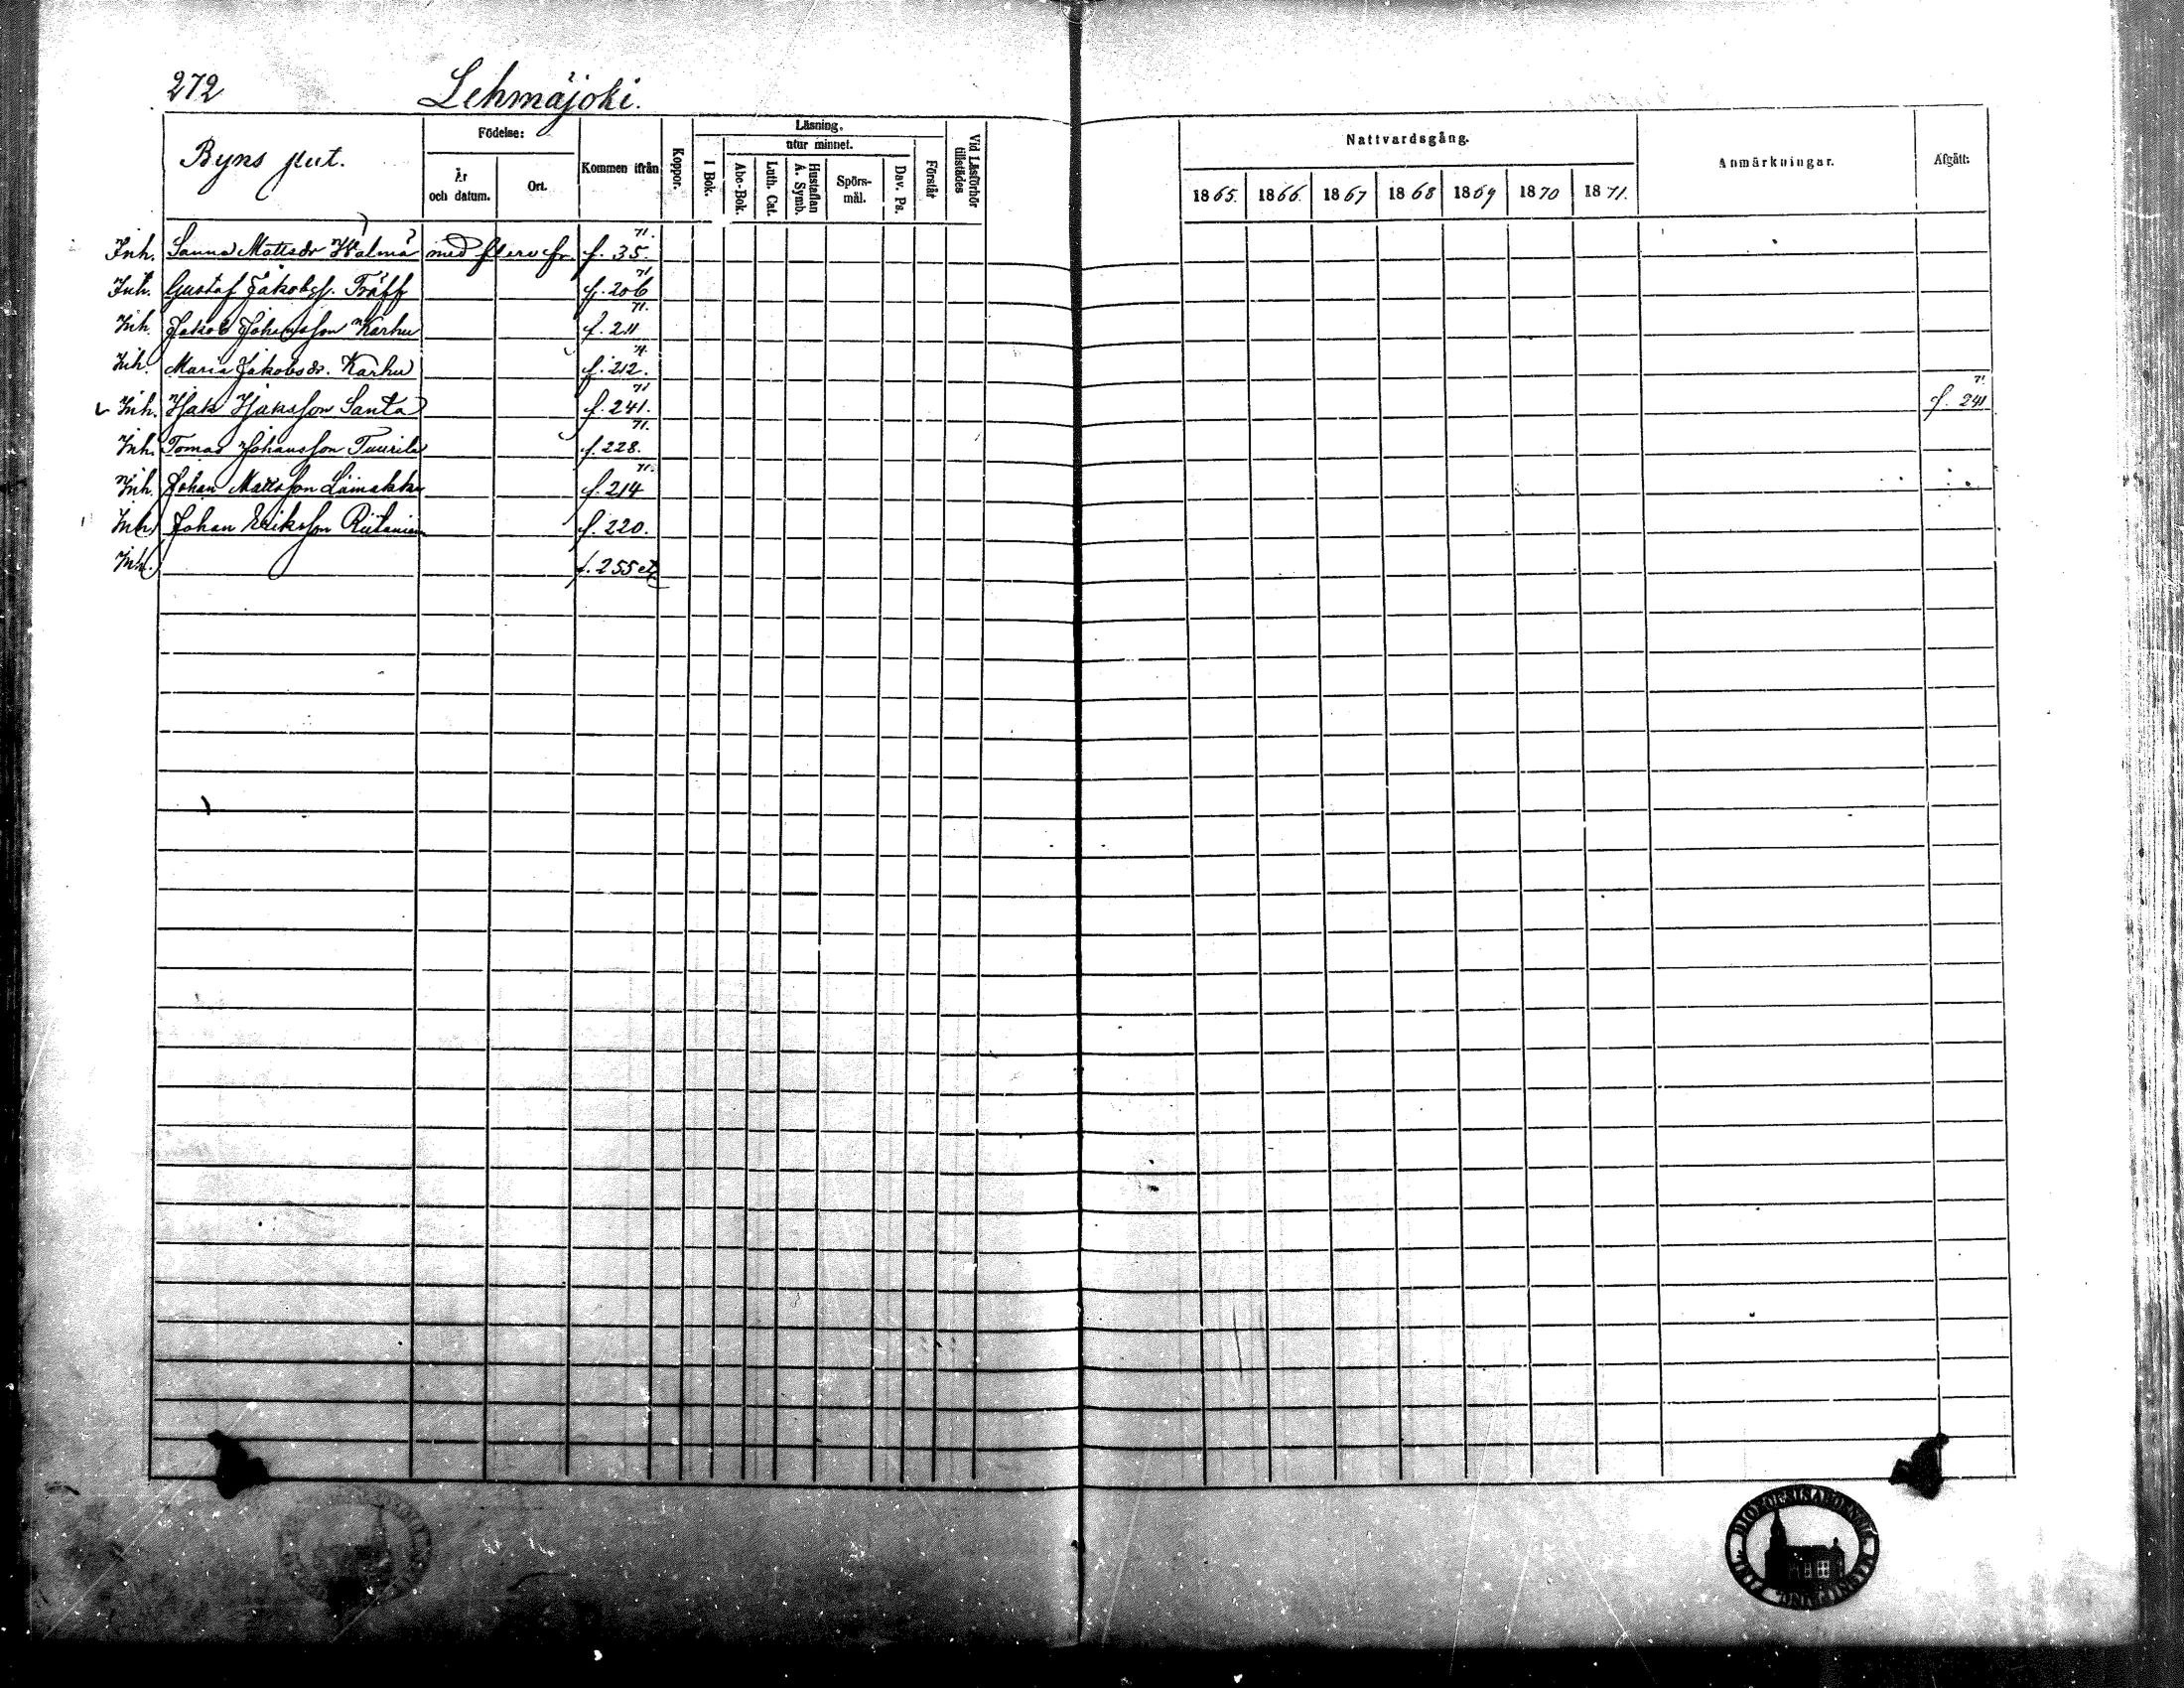 272 Lehmäjoki.
Byns
Födelse:
År och datum.
Ort.
Kommen ifrån
Koppor.
Läsning.
I Bok.
utur minnet.
Abc-Bok.
Luth. Cat.
Hustaflan A. Symb.
Spörs-mål.
Dav. Ps.
Förstår
Vid Läsförhör tillstädes
Nattvardsgång.
1865. 1866. 1867 1868 1869 1870 1871.
Anmärkningar.
Afgått:
Inh. Sanna Mattsdr med f. 35. 71.
Inh. Gustaf Jakobss. Träff f. 206 71
Inh. Jakob Johansson Karhu f. 211 71.
Inh. Maria Jakobsdr. Karhu f. 212. 71.
Inh. Isak Isaksson Santa f. 241. 71 f. 241 71.
Inh. Tomas Johansson Tuurila f. 228. 71.
Inh. Johan Mattsson f. 214 71.
Inh. Johan Eriksson f. 220.
Inh. f. 255 etc